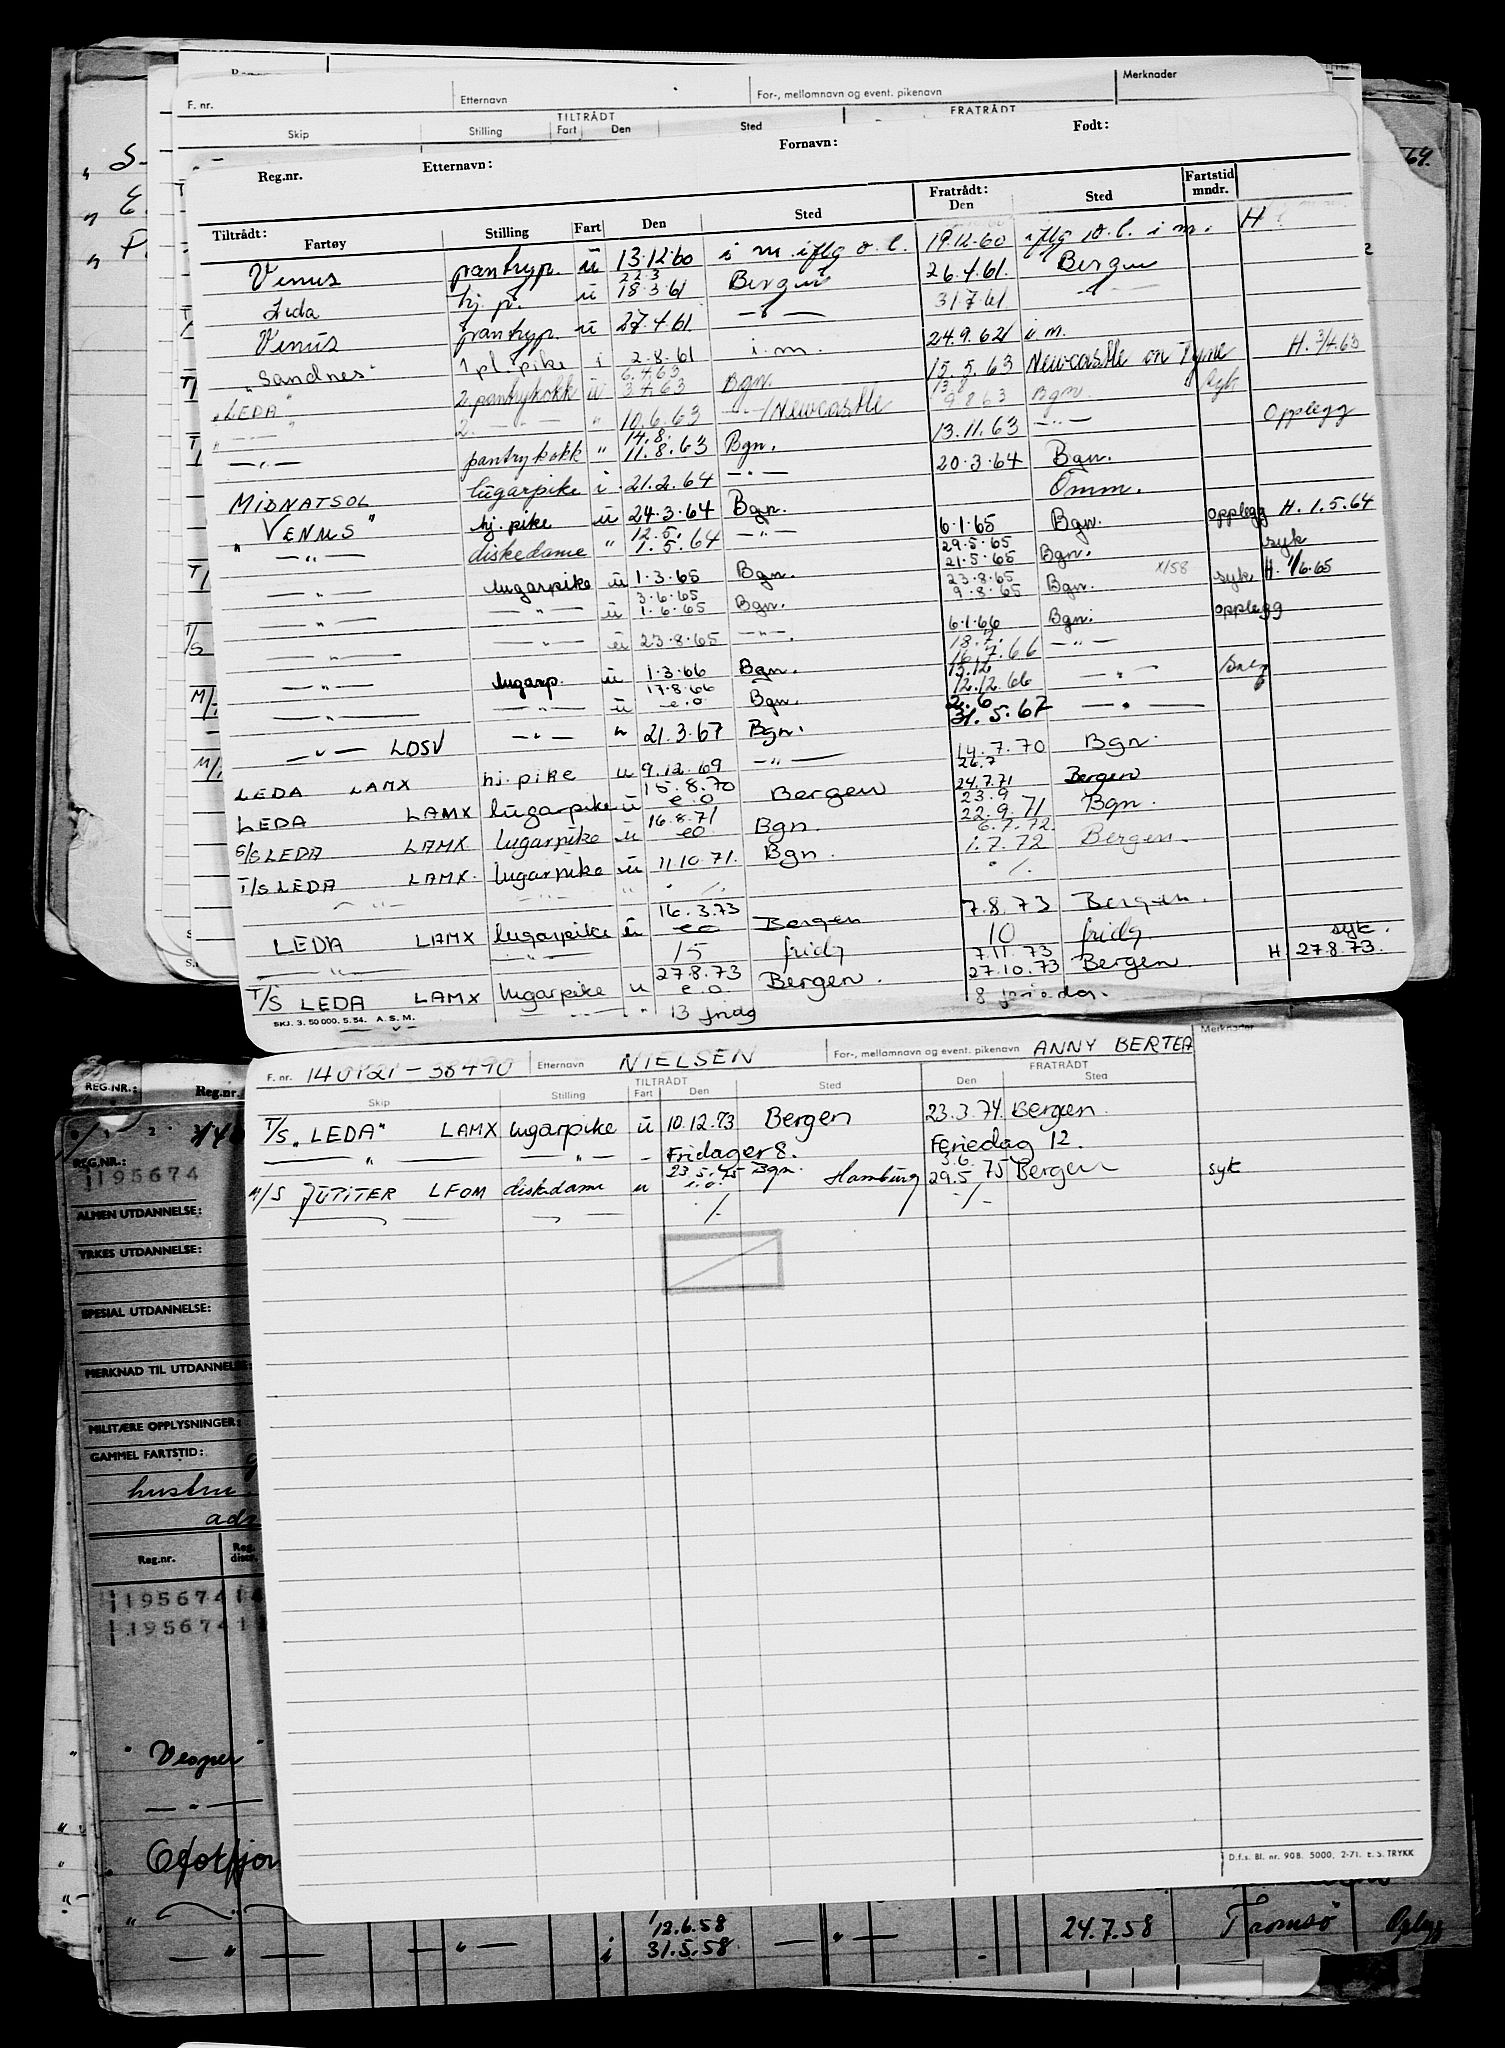 F. nr.
Etternavn
For-, mellomnavn og event. pikenavn
Merknader
TILTRÅDT
FRATRÅDT
Skip Stilling Fart Den Sted
Reg.nr. Etternavn: Fornavn: Født:
Tiltrådt: Fartøy Stilling Fart Den Sted Fratrådt: Den Sted Fartstid mndr.
Venus pantryp. u 13.12.60 i m. iflg o.l. 19.12.60 iflg o.l. i m. H
22.3
Leda hj. p. u 18.3.61 Bergen 26.4.61. Bergen
Venus pantryp. u 27.4.61. — " — 31.7.61 — " —
"Sandnes" 1 pl. pike i 2.8.61 i.m. 24.9.62 i m.
6.4.63
"LEDA" 2 pantrykokk u 3.4.63 Bgn. 15.5.63 Newcastle on Tyne H. 3/4.63
13.8
— " — 2. — " — " 10.6.63 — " — / Newcastle 9.8.63 Bgn. syk
14.8.
— " — pantrykokk " 11.8.63 Bgn. 13.11.63 — " — Opplegg
MIDNATSOL lugarpike i 21.2.64 — " — 20.3.64 Bgn.
"VENUS" hj. pike u 24.3.64 Bgn. Omm.
12.5.
— " — diskedame " 1.5.64 — " — 6.1.65 Bgn. opplegg H. 1.5.64
29.5.65
— " — lugarpike u 1.3.65 Bgn. 21.5.65 Bgn. syk
3.6.65 23.8.65
— " — — " — u 1.6.65 Bgn. 9.8.65 Bgn. X/58 syk H. 1/6.65
— " — — " — u 23.8.65 — " — 6.1.66 Bgn. opplegg
18.7.
— " — lugarp. u 1.3.66 Bgn. 16.7.66 — " —
17.8.66 15.12
— " — — " — u e.o Bgn. 12.12.66 — " —
2.6
— " — LDSV — " — " 21.3.67 Bgn. 31.5.67 — " —
LEDA LAMX hj. pike u 9.12.69 — " — 14.7.70 Bgn.
15.8.70 26.7
LEDA LAMX lugarpike u e.o Bergen 24.7.71 Bergen
16.8.71 23.9
S/S LEDA LAMX lugarpike u eo Bgn. 22.9.71 Bgn.
6.7.72.
T/S LEDA LAMX. lugarpike u 11.10.71. Bgn. 1.7.72 Bergen.
— " — — " — " ./. ./.
16.3.73
LEDA LAMX lugarpike u eo Bergen 7.8.73 Bergen.
— " — — " — 15 fridg 10 fridg
27.8.73 7.11.73 syk.
T/S LEDA LAMX lugarpike u e.o. Bergen. 27.10.73 Bergen H. 27.8.73.
— " — — " — " 13 fridg 8 feriedag.
SKJ. 3. 50 000. 5. 54. A. S. M.
F. nr. 140121-38490 Etternavn NIELSEN For-, mellomnavn og event. pikenavn ANNY BERTEA Merknader
TILTRÅDT FRATRÅDT
Skip Stilling Fart Den Sted Den Sted
T/S "LEDA" LAMX lugarpike u 10.12.73 Bergen 23.3.74. Bergen.
— " — — " — - Fridager 8. Feriedag 12.
23.5.75 3.6.
M/S JUPITER LFOM diskedame u i.o. Bgn. Hamburg 29.5.75 Bergen syk
./. ./.
D.f.s. Bl. nr. 90B. 5000, 2-71. E. S. TRYKK
REG.NR.: Reg.nr.
REG.NR.:
195674
ALMEN UTDANNELSE:
YRKES UTDANNELSE:
SPESIAL UTDANNELSE:
MERKNAD TIL UTDANNELSE:
MILITÆRE OPPLYSNINGER:
GAMMEL FARTSTID:
hustru
Reg.nr.
195674
195674
"Vesper"
— " —
Ofotfjor
12.6.58
— " — — " — i 31.5.58 — " — 24.7.58 Tromsø Opplegg